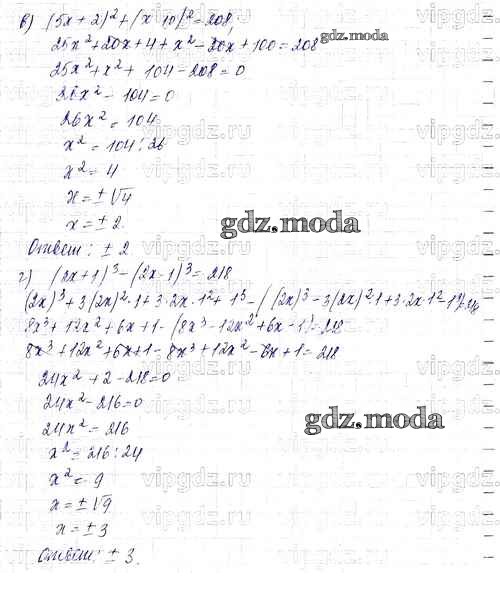 в) (5x + 2)² + (x - 10)² = 208,
25x² + 20x + 4 + x² - 20x + 100 = 208
25x² + x² + 104 - 208 = 0
26x² - 104 = 0
26x² = 104
x² = 104 : 26
x² = 4
x = ± √4
x = ± 2
gdz.moda
Ответ: ± 2
г) (2x + 1)³ - (2x - 1)³ = 218
(2x)³ + 3(2x)²·1 + 3·2x·1² + 1³ - ((2x)³ - 3(2x)²·1 + 3·2x·1² - 1³) = 218
8x³ + 12x² + 6x + 1 - (8x³ - 12x² + 6x - 1) = 218
8x³ + 12x² + 6x + 1 - 8x³ + 12x² - 6x + 1 = 218
24x² + 2 - 218 = 0
24x² - 216 = 0
24x² = 216
gdz.moda
x² = 216 : 24
x² = 9
x = ± √9
x = ± 3
Ответ: ± 3.
vipgdz.ru